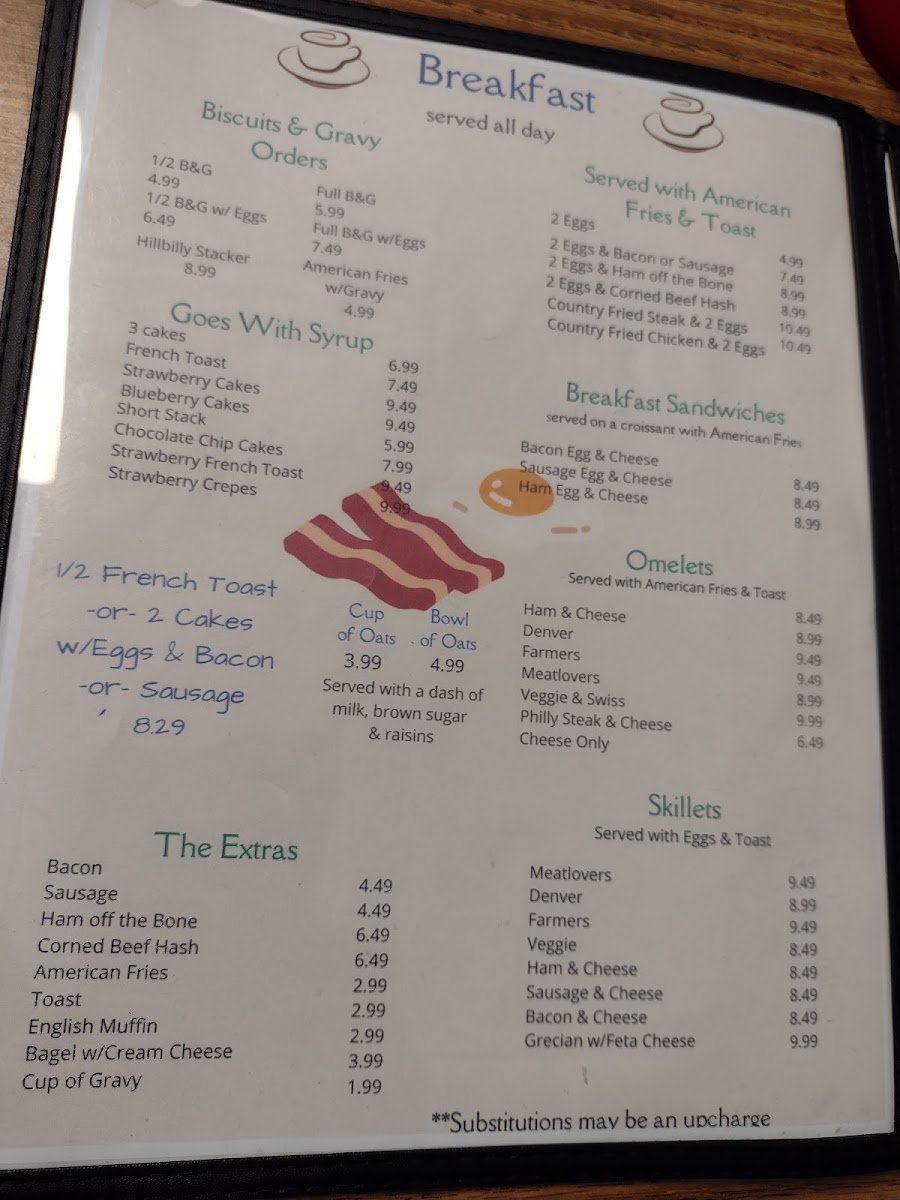 Breakfast
served all day
Biscuits & Gravy
Orders
1/2 B&G
4.99
Full B&G
5.99
1/2 B&G w/ Eggs
6.49
Full B&G w/Eggs
7.49
Hillbilly Stacker
8.99
American Fries
w/Gravy
4.99
Goes With Syrup
3 cakes 6.99
French Toast 7.49
Strawberry Cakes 9.49
Blueberry Cakes 9.49
Short Stack 5.99
Chocolate Chip Cakes 7.99
Strawberry French Toast 9.49
Strawberry Crepes 9.99
1/2 French Toast
-or- 2 Cakes
w/Eggs & Bacon
-or- Sausage
8.29
Cup
of Oats
3.99
Bowl
of Oats
4.99
Served with a dash of
milk, brown sugar
& raisins
The Extras
Bacon 4.49
Sausage 4.49
Ham off the Bone 6.49
Corned Beef Hash 6.49
American Fries 2.99
Toast 2.99
English Muffin 2.99
Bagel w/Cream Cheese 3.99
Cup of Gravy 1.99
Served with American
Fries & Toast
2 Eggs 4.99
2 Eggs & Bacon or Sausage 7.49
2 Eggs & Ham off the Bone 8.99
2 Eggs & Corned Beef Hash 8.99
Country Fried Steak & 2 Eggs 10.49
Country Fried Chicken & 2 Eggs 10.49
Breakfast Sandwiches
served on a croissant with American Fries
Bacon Egg & Cheese 8.49
Sausage Egg & Cheese 8.49
Ham Egg & Cheese 8.99
Omelets
Served with American Fries & Toast
Ham & Cheese 8.49
Denver 8.99
Farmers 9.49
Meatlovers 9.49
Veggie & Swiss 8.99
Philly Steak & Cheese 9.99
Cheese Only 6.49
Skillets
Served with Eggs & Toast
Meatlovers 9.49
Denver 8.99
Farmers 9.49
Veggie 8.49
Ham & Cheese 8.49
Sausage & Cheese 8.49
Bacon & Cheese 8.49
Grecian w/Feta Cheese 9.99
**Substitutions may be an upcharge